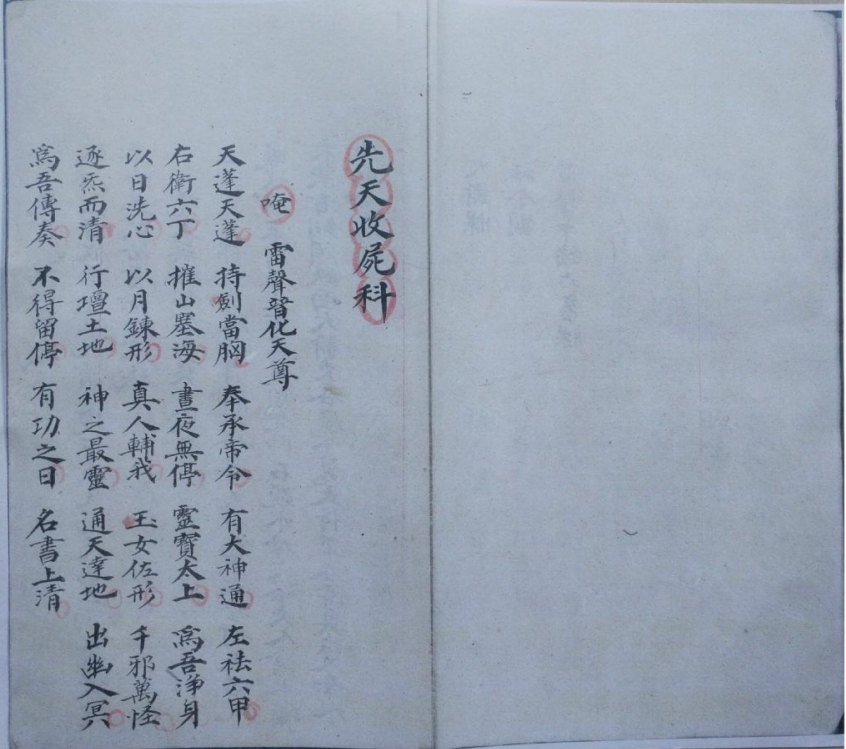 先天收屍科
唵 雷聲普化天尊
天蓬天蓬 持劍當胸 奉承帝令 有大神通 左祛六甲
右衛六丁 摧山塞海 晝夜無停 靈寶太上 為吾淨身
以日洗心 以月鍊形 真人輔我 玉女佐形 千邪萬怪
逐炁而清 行壇土地 神之最靈 通天達地 出幽入冥
為吾傳奏 不得留停 有功之日 名書上清